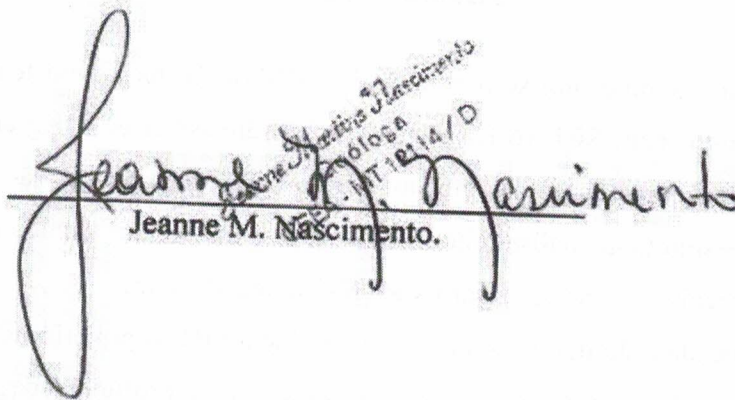 Jeanne M. Nascimento
Jeanne Martins Nascimento
MT 10114/D
Jeanne M. Nascimento.